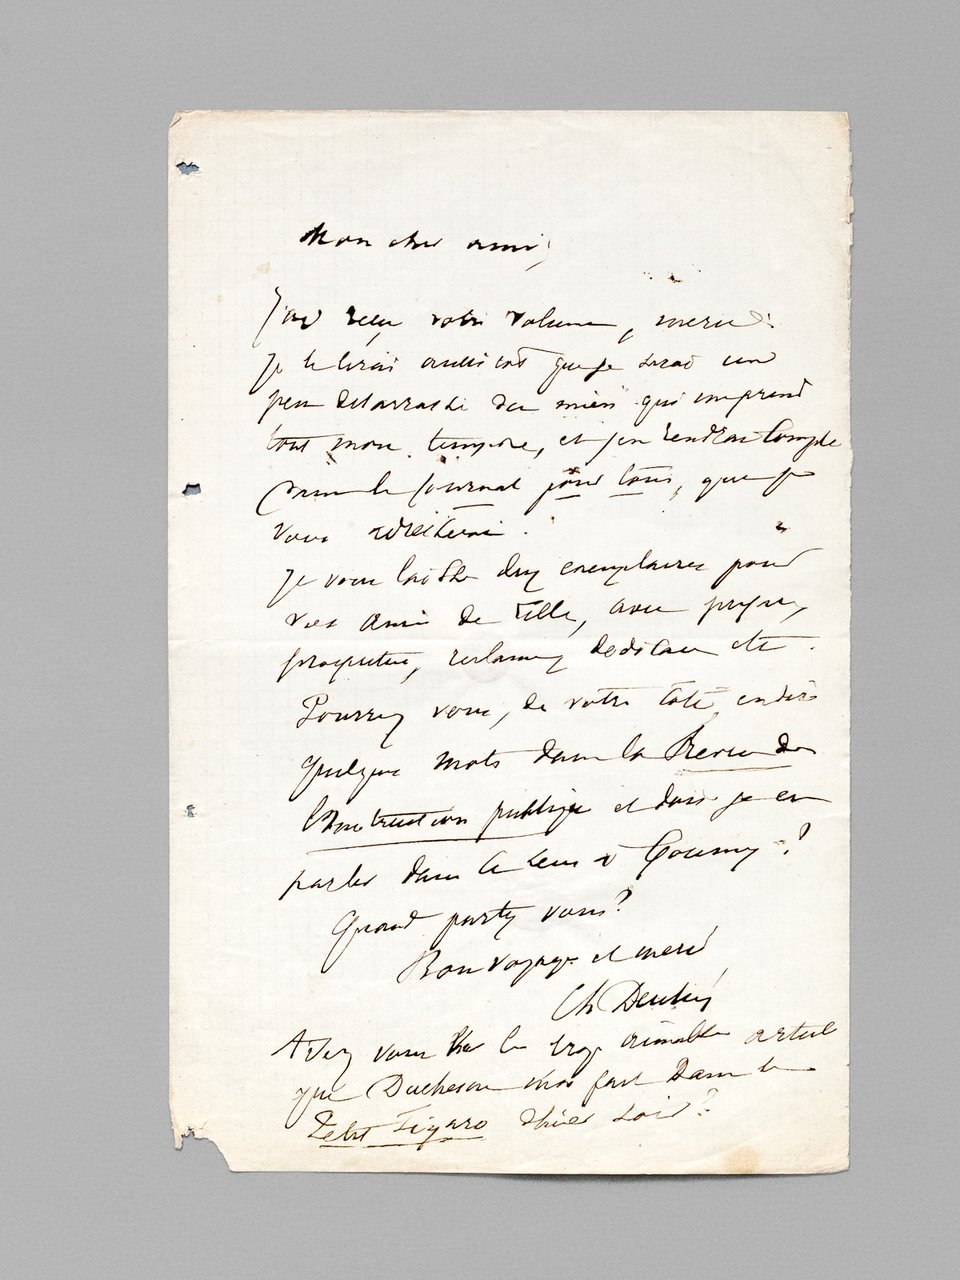 Mon cher ami,
J'ai reçu votre volume, merci.
Je le lirai aussitôt que je serai un
peu débarrassé du mien qui me prend
tout mon temps, et j'en rendrai compte
dans le Journal pour tous, que je
vous
Je vous laisse deux exemplaires pour
vos amis de Lille, avec
prospectus, réclames, dédicaces etc.
Pourrez vous, de votre côté, en dire
quelques mots dans la Revue de
l'Instruction publique et dois-je en
parler dans
Quand partez vous?
Bon voyage et merci
Ch Deulin
Avez vous lu le trop aimable article
que Duchesne m'a fait dans le
Petit Figaro d'hier soir?